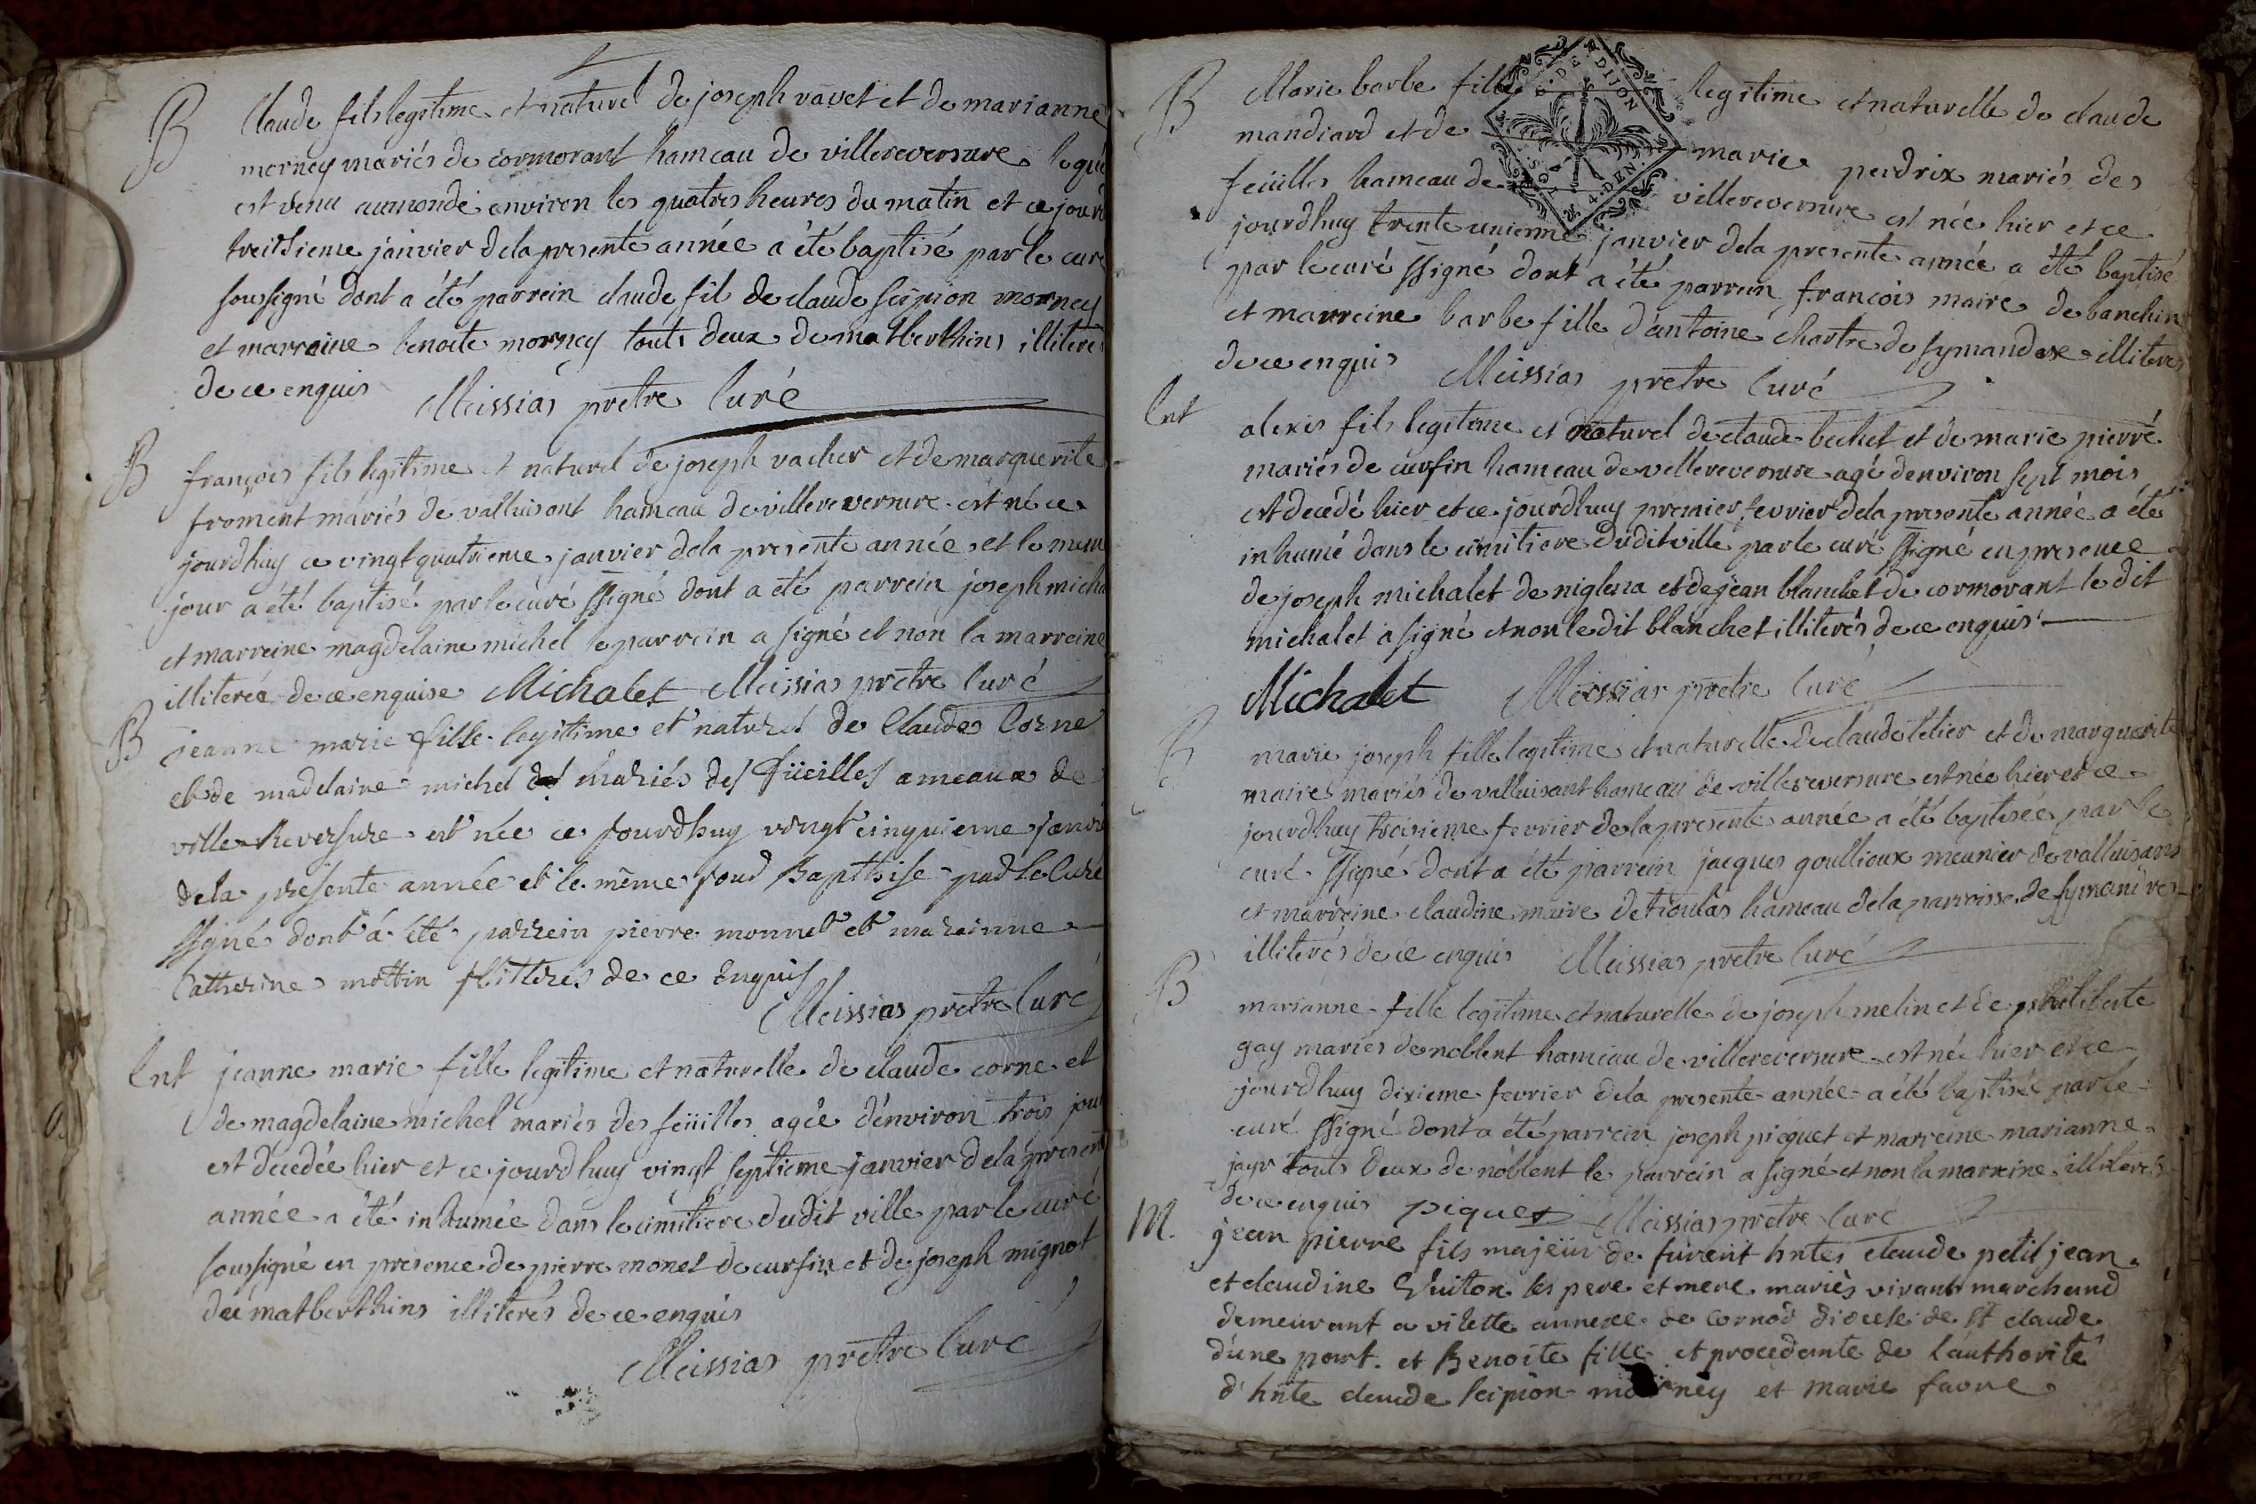 B Claude fils legitime et naturel de joseph ravet et de marianne
morney mariés de cormorant hameau de villereversure lequel
est venu aumonde environ les quatres heures du matin et ce jourd
treitsieme janvier dela presente année a été baptisé par le curé
soussigné dont a été parrein claude fils de claude scipion morney
et marreine benoite morney touts deux de matberthins illiteré
de ce enquis Meissias pretre Curé
B françois fils legitime et naturel de joseph vacher et de marguerite
froment mariés de valluisant hameau de villereversure est né ce
jourdhuy ce vingt quatrieme janvier dela presente année et le meme
jour a été baptisé par le curé ssigné dont a été parrein joseph micha
et marreine magdelaine michel le parrein a signé et non la marreine
illiterée de ce enquise Michalet Meissias pretre Curé
B jeanne marie fille legitime et naturel de Claude Corne
et de madelaine michel mariés des füeilles ameaux de
ville Reversure est née ce jourdhuy vingt cinquieme janvi
dela presente année et le même jour Bapthise par Le Curé
ssigné dont a été parrein pierre monnet et mareinne
Catherine mottin illitires de ce Enquis
Meissias pretre Curé
Ent jeanne marie fille legitime et naturelle de claude corne et
de magdelaine michel mariés des feüilles agée d'environ trois jour
est décedée hier et ce jourdhuy vingt septieme janvier dela present
année a été inhumée dans le cimitiere dudit ville par le curé
soussigné en presence de pierre monet de cursin et de joseph mignot
dei matberthins illiterés de ce enquis
Meissias pretre Curé
B Marie barbe fille legitime et naturelle de claude
mandiard et de marie perdrix mariés des
feüilles hameau de villereversure est née hier et ce
jourdhuy trente unieme janvier dela presente année a été baptisé
par le curé ssigné dont a été parrein françois maire de banchin
et marreine barbe fille d'antoine chartre de symandre illiteres
de ce enquis Meissias pretre Curé
Ent alexis fils legitime et naturel de claude bechet et de marie pierre
mariés de cursin hameau de villereversure agé denviron sept mois
est decédé hier et ce jourdhuy premier fevrier dela presente année a été
inhumé dans le cimitiere dudit ville par le curé ssigné en presence
de joseph michalet de niglena et de jean blanchet de cormorant le dit
michalet a signé et non le dit blanchet illiterés de ce enquis
Michalet Meissias pretre Curé
B marie joseph fille legitime et naturelle de claude letier et de marguerite
maire mariés de valluisant hameau de villereversure est née hier et ce
jourdhuy troisieme fevrier de la presente année a été baptisée par le
curé ssigné dont a été parrein jacques goullioux meunier de valluisans
et marreine claudine maire de trouias hameau dela parroisse de symandres
illiterés de ce enquis Meissias pretre Curé
B marianne fille legitime et naturelle de joseph melin et de philiberte
gay mariés de noblent hameau de villereversure est née hier et ce
jourdhuy dixieme fevrier dela presente année a été baptisée par le
curé ssigné dont a été parrein joseph picquet et marreine marianne
jayr touts deux de noblent le parrein a signé et non la marreine illiterés
de ce enquis piquet Meissias pretre Curé
M. jean pierre fils majeür de fürent hntes claude petitjean
et claudine Guiton les pere et mere mariés vivant marchand
demeurant a vilette annexe de Cornod diocese de St claude
d'une part. et Benoite fille et procedante de L'authorité
d'hnte claude scipion morney et marie favre